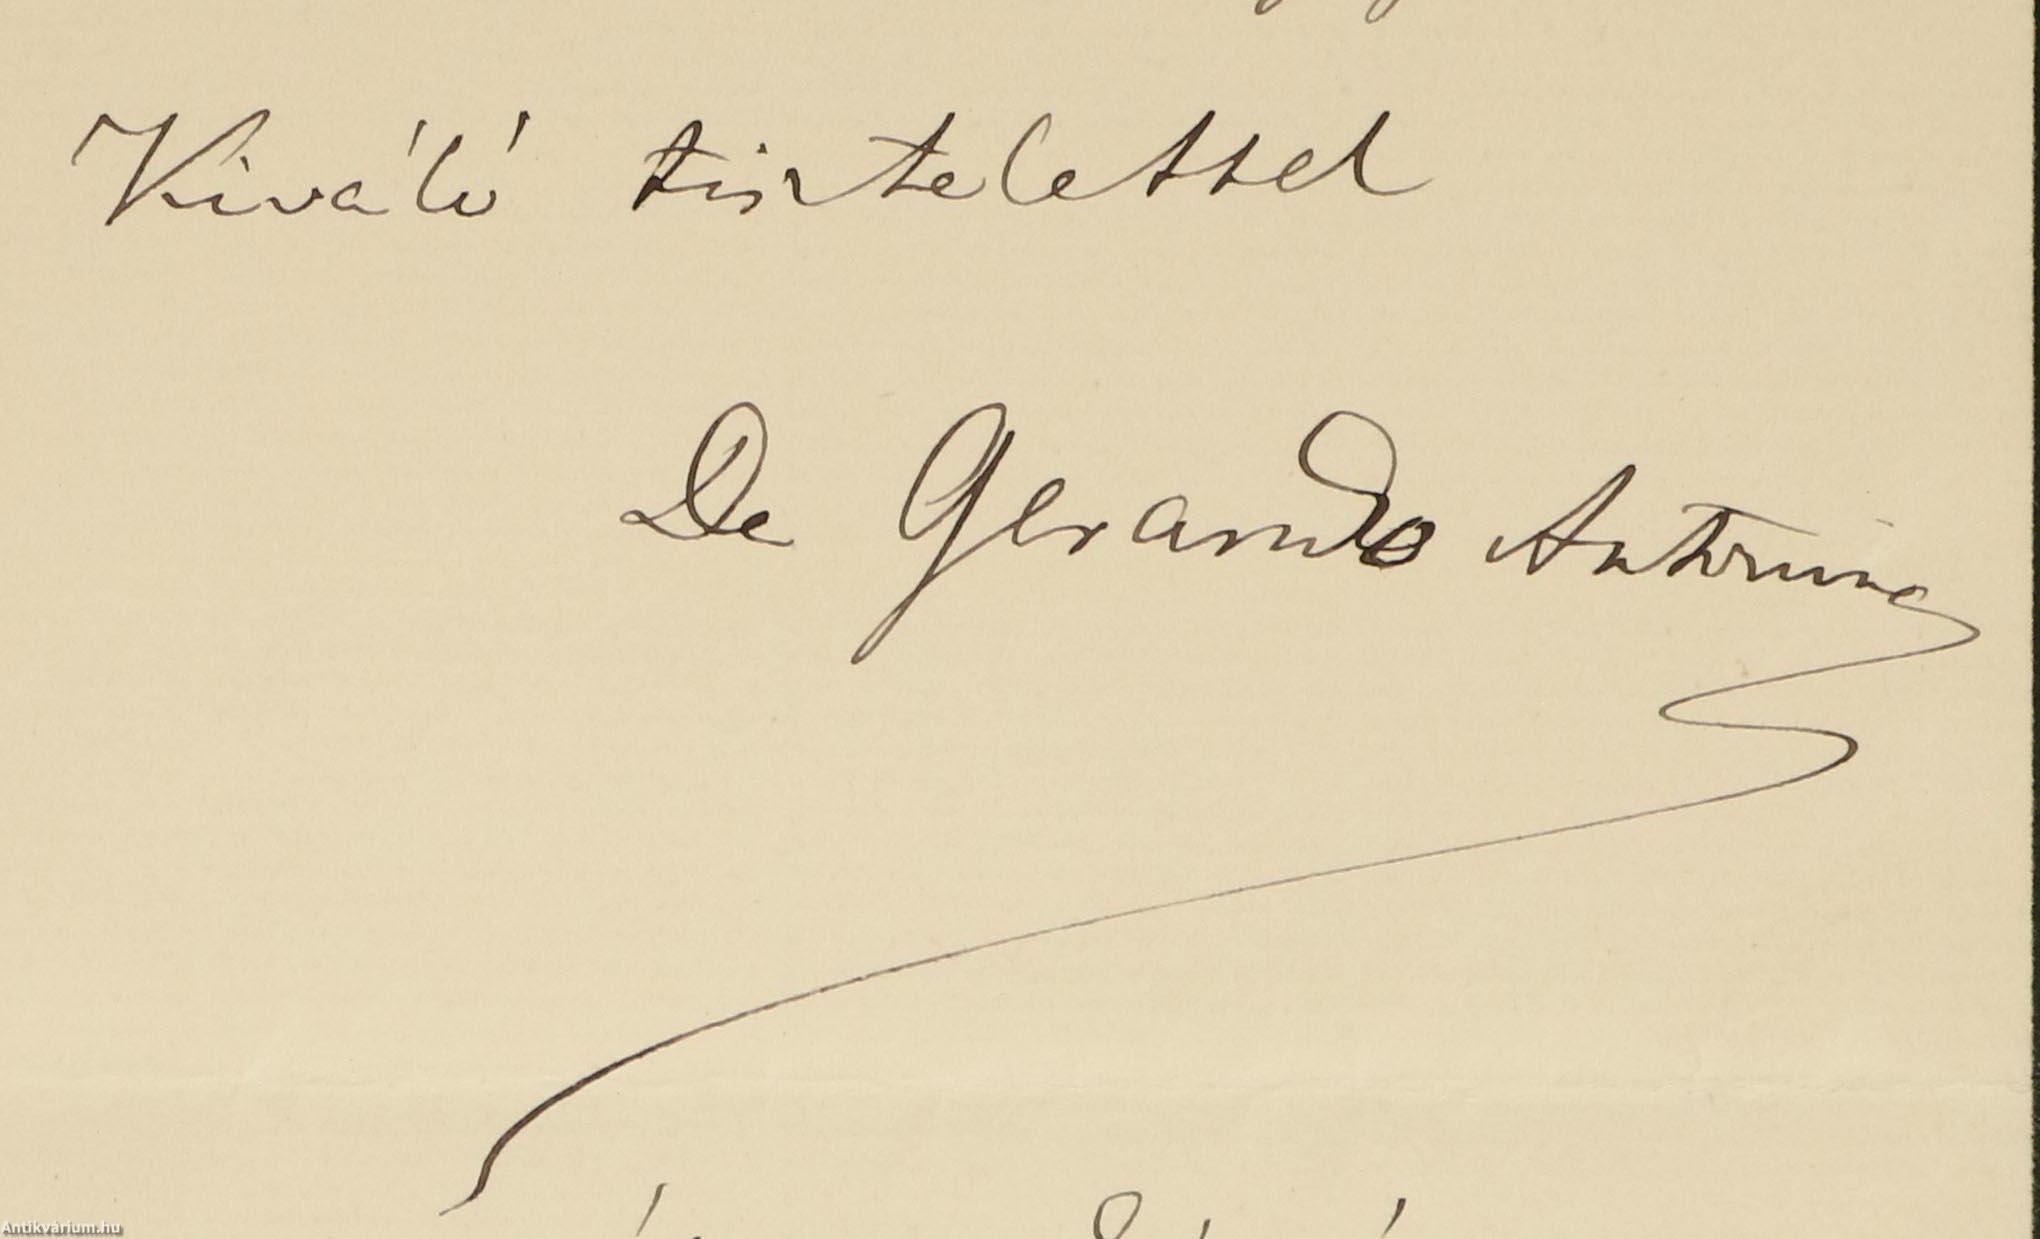 Kiváló tisztelettel
De Gerando Antonina
Antikvárium.hu